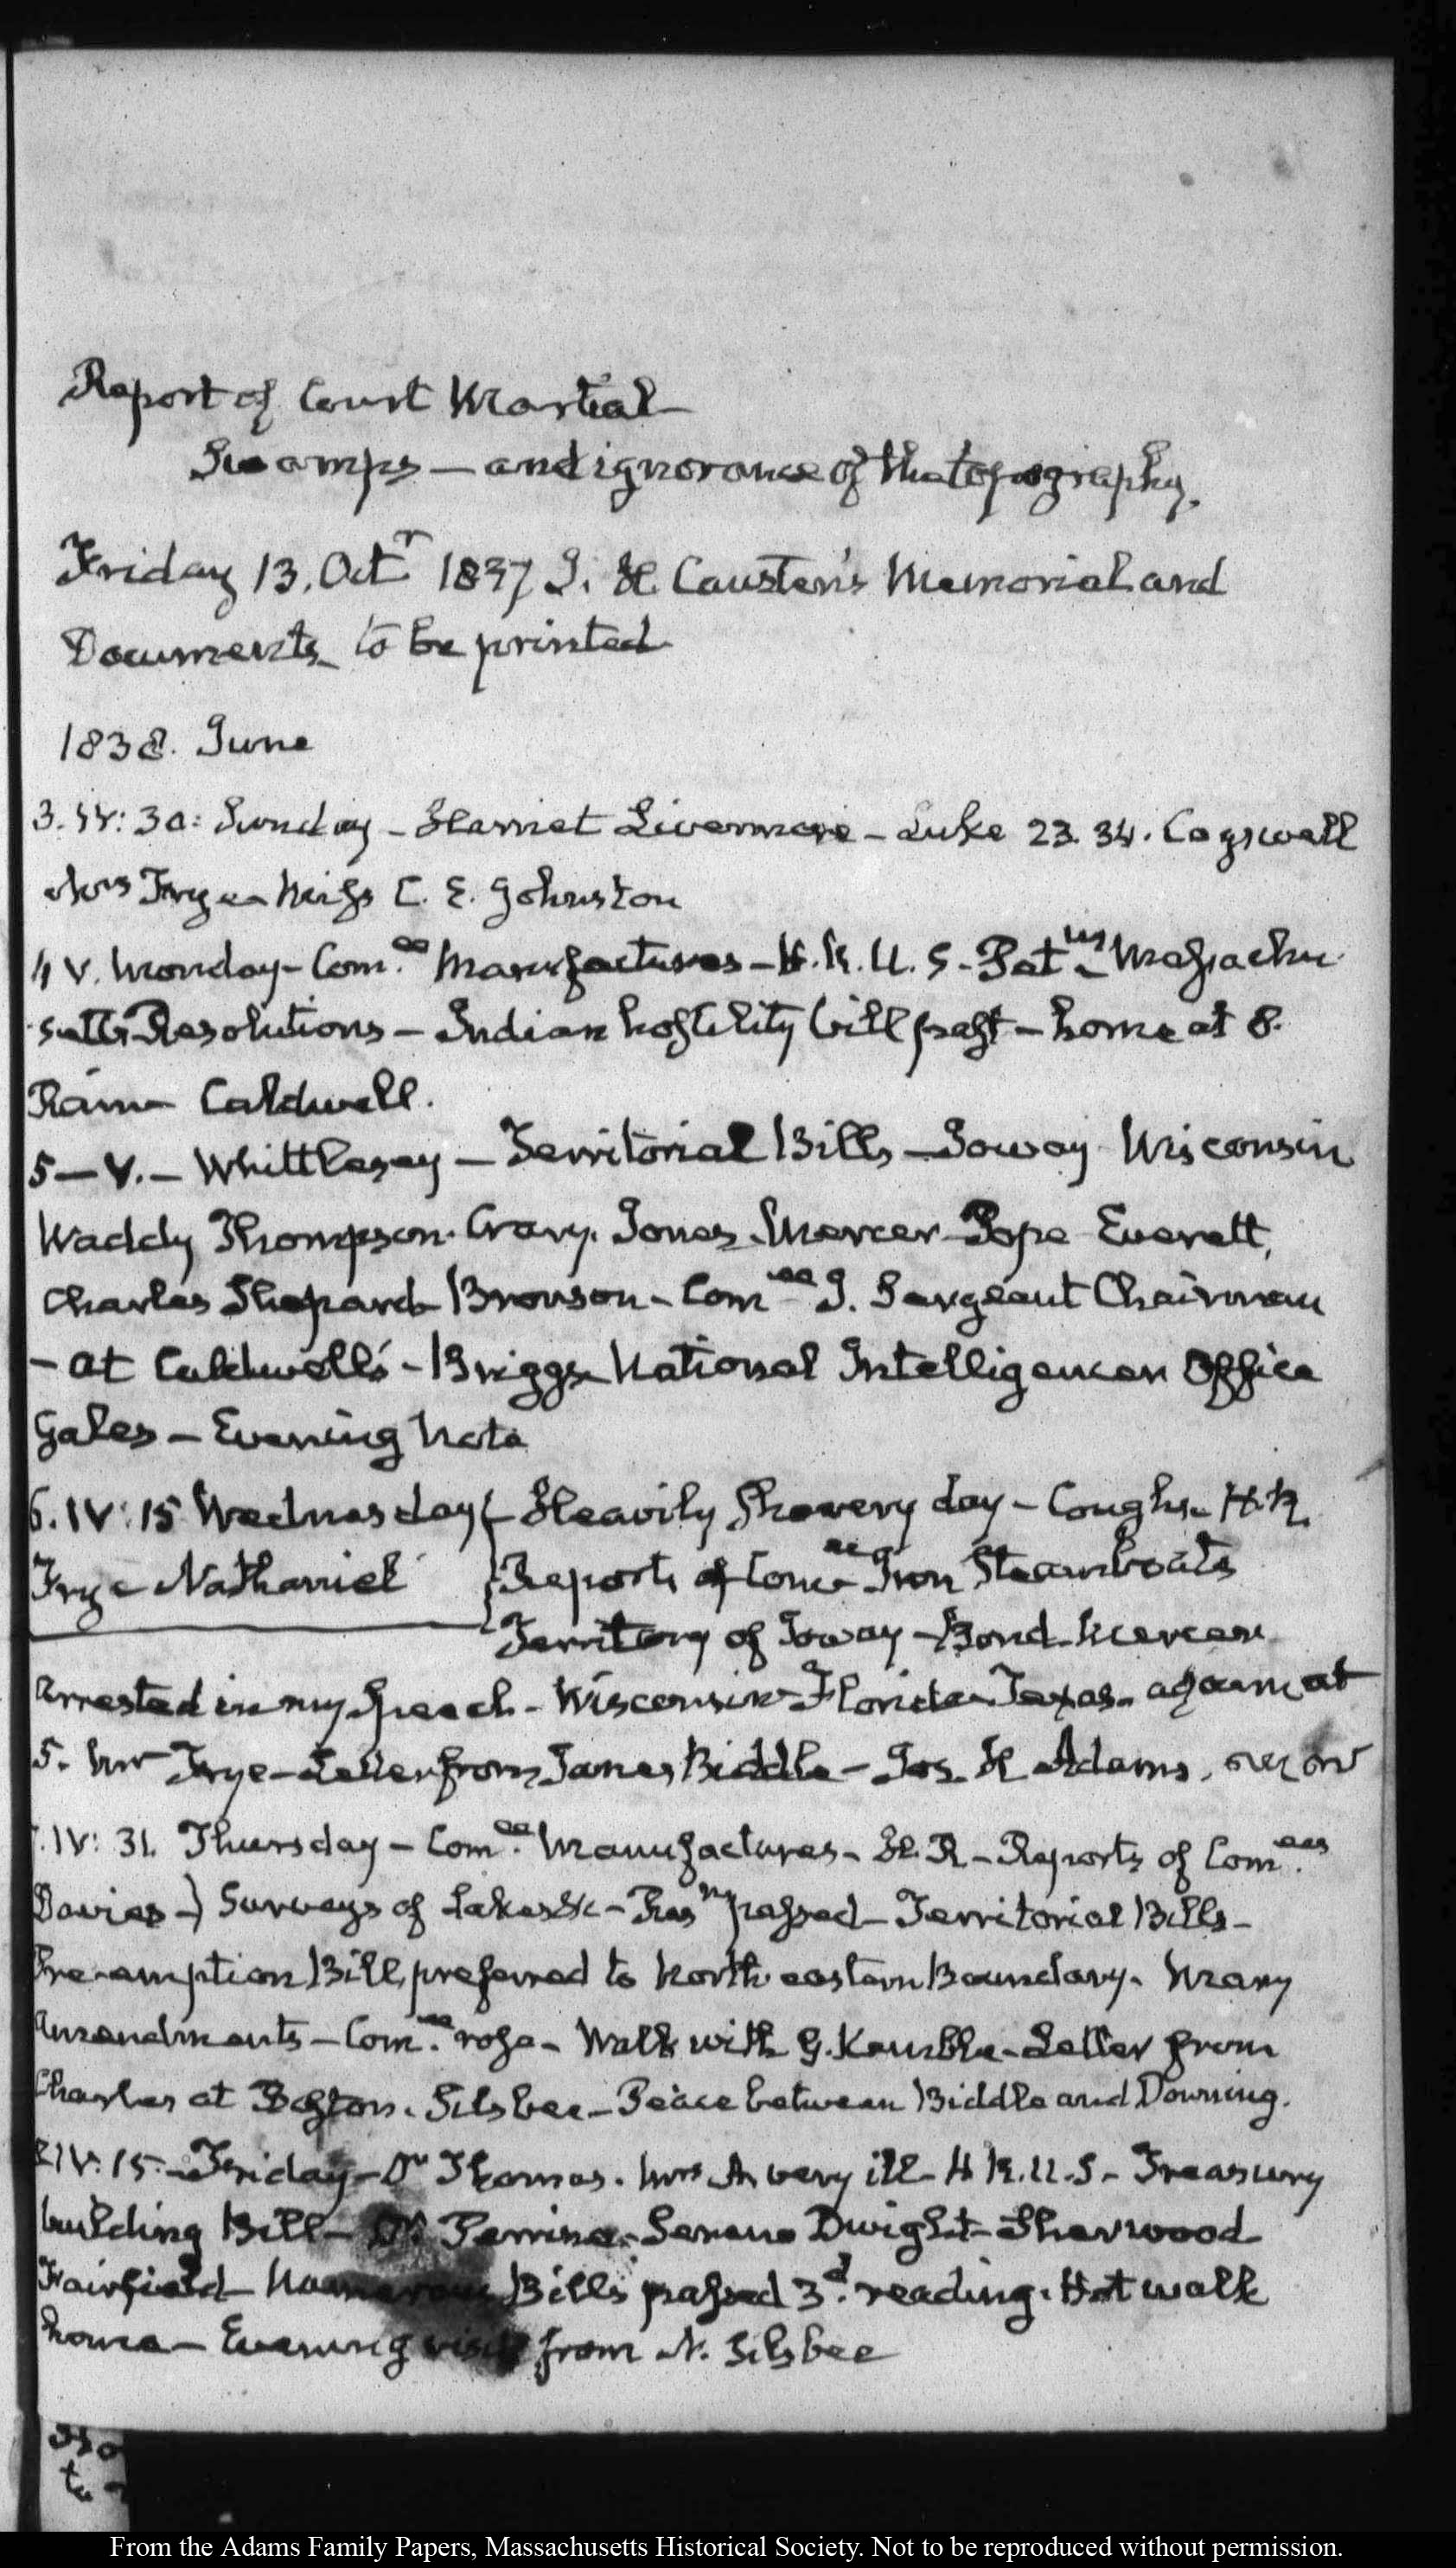 Report of Court Martial
Swamps — and ignorance of the topography.
Friday 13. Octr 1837 J. H. Causten's Memorial and
Documents to be printed
1838. June
3. IV: 30: Sunday – Harriet Livermore – Luke 23. 34. Cogswell
Mrs Frye – Miss C. E. Johnston
4 V. Monday – Comee Manufactures – H. R. U. S – Petns Massachu
setts Resolutions – Indian hostility bill past – home at 8.
Rain – Caldwell.
5 – V. – Whittlesey – Territorial Bills – Ioway Wisconsin
Waddy Thompson. Crary. Jones. Mercer Pope Everett,
Charles Shepard Bronson – Comee J. Sergeant Chairman
– at Caldwell's – Briggs National Intelligencer Office
Gales – Evening Note
6. IV: 15 Wednesday Heavily Showery day – Cough – H.R.
Frye Nathaniel Reports of Comee Iron Steamboats
Territory of Ioway – Bond Mercer
arrested in my Speech – Wisconsin – Florida – Texas – again at
5. Mr Frye – Letter from James Biddle – Jos. H Adams,
IV: 31. Thursday – Comee Manufactures – H. R – Reports of Comees
Davies – Surveys of Lakes &c – passed – Territorial Bills –
Pre-emption Bill, preferred to North eastern Boundary. Many
Amendments – Comee rose – Walk with G. Kemble – Letter from
Charles at Boston. Silsbee – Peace between Biddle and Downing.
8 IV: 15. – Friday – Dr Thomas. Mrs A very ill – H R. U. S – Treasury
building Bill – Dr Perrine – Sereno Dwight – Sherwood
Fairfield – Numerous Bills passed 3d. reading. Hot walk
home – Evening visit from N. Silsbee
From the Adams Family Papers, Massachusetts Historical Society. Not to be reproduced without permission.